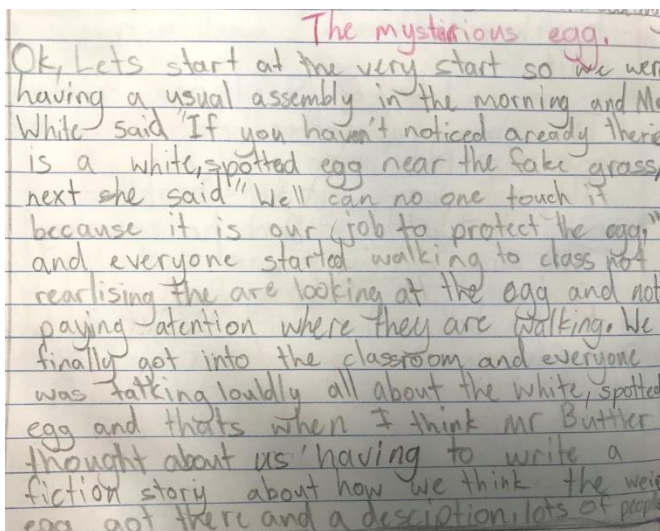 The mysterious egg.
Ok, Lets start at the very start so we wer
having a usual assembly in the morning and M
White said "If you haven't noticed aready there
is a white, spotted egg near the fake grass,
next she said" Well can no one touch it
because it is our job to protect the egg."
and everyone started walking to class not
rearlising the are looking at the egg and not
paying atention where they are walking. We
finally got into the classroom and everyone
was talking louldly all about the white, spotted
egg and thats when I think mr Buttler
thought about us having to write a
fiction story about how we think the weir
egg got there and a desciption, lots of people